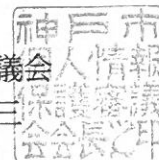 議会
神戸市
個人情報
保護審議
会会長之印